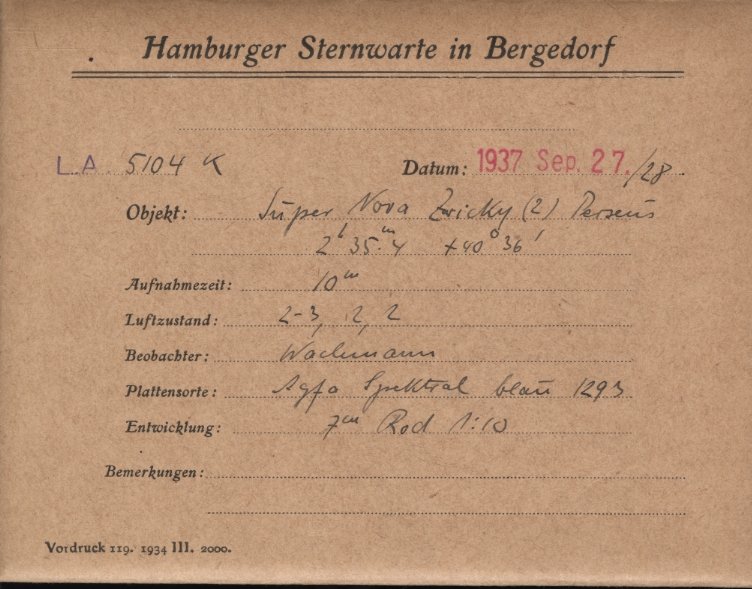 Hamburger Sternwarte in Bergedorf
L.A. 5104 K Datum: 1937 Sep. 27./28.
Objekt: Super Nova Zwicky (2) Perseus
2ʰ 35ᵐ.4 +40° 36'
Aufnahmezeit: 10ᵐ
Luftzustand: 2-3, 2, 2
Beobachter: Wachmann
Plattensorte: Agfa Spektral blau 1293
Entwicklung: 7ᵐ Rod 1:10
Bemerkungen:
Vordruck 119. 1934 III. 2000.